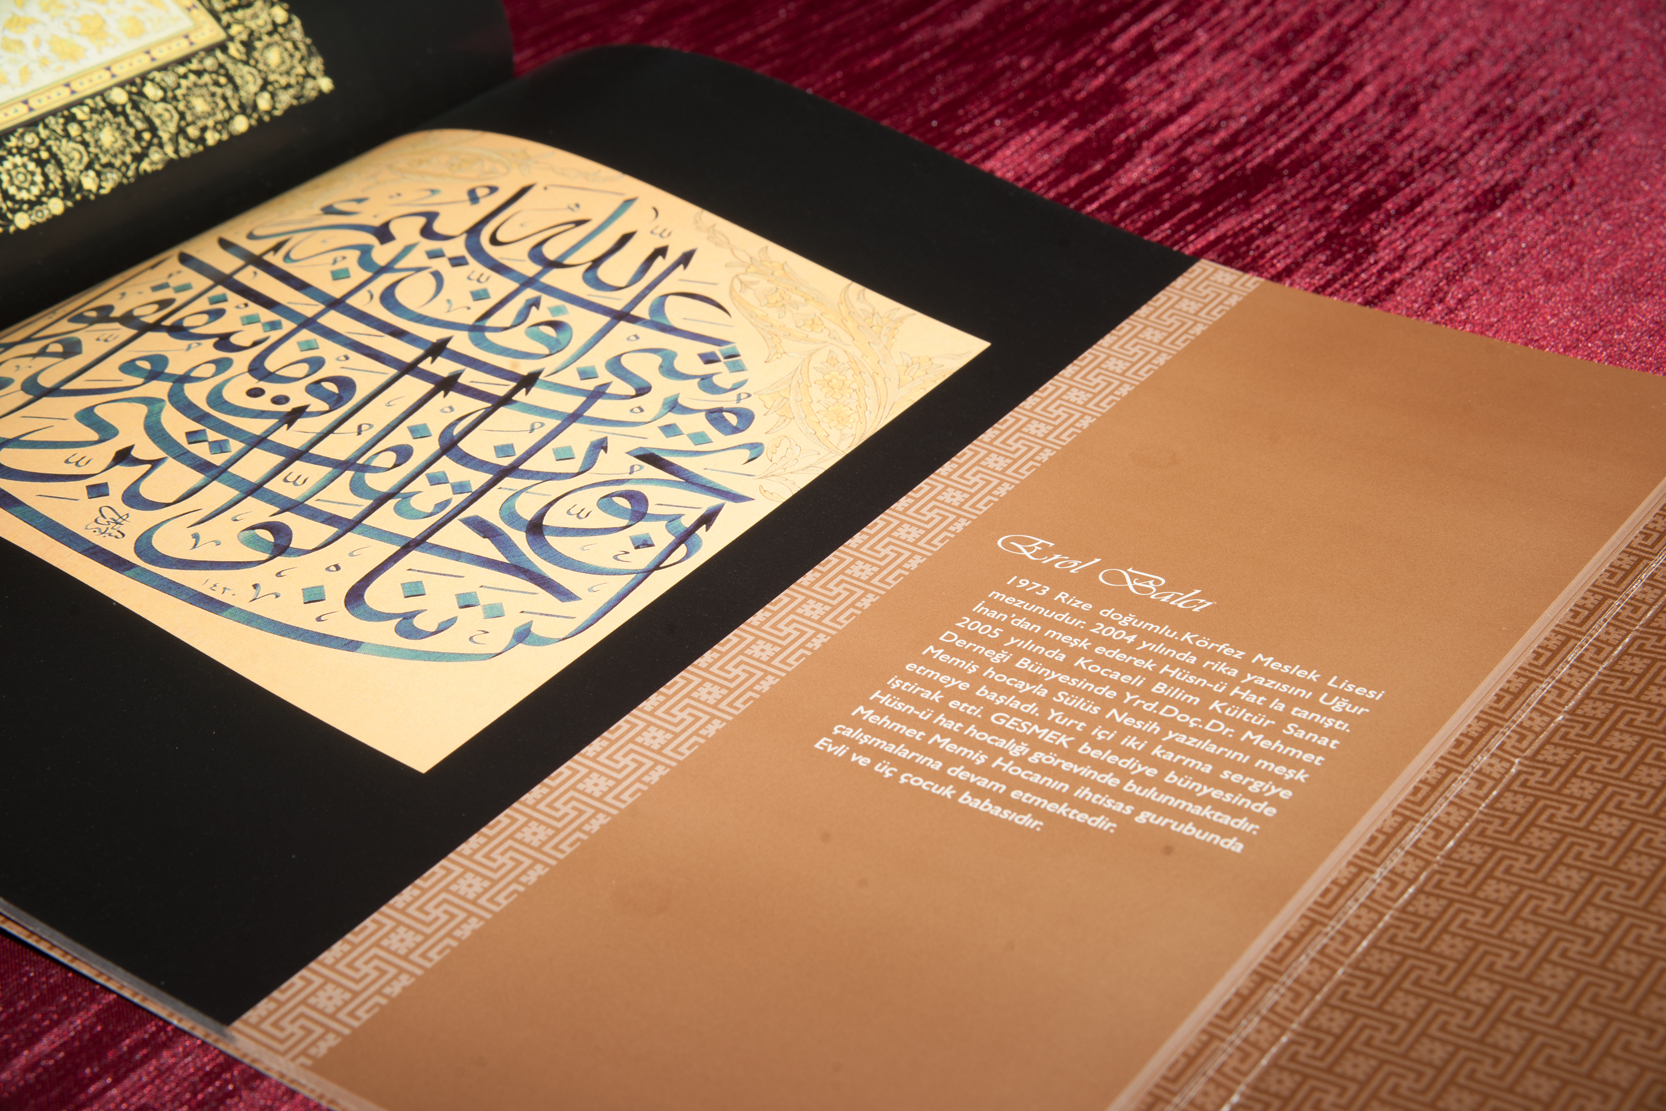 لن تنالوا البر حتى
تنفقوا مما تحبون
وما تنفقوا من شيء
فإن الله به عليم
١٤٣٠
Erol Balcı
1973 Rize doğumlu.Körfez Meslek Lisesi
mezunudur. 2004 yılında rika yazısını Uğur
İnan'dan meşk ederek Hüsn-ü Hat la tanıştı.
2005 yılında Kocaeli Bilim Kültür Sanat
Derneği Bünyesinde Yrd.Doç.Dr. Mehmet
Memiş hocayla Sülüs Nesih yazılarını meşk
etmeye başladı. Yurt içi iki karma sergiye
iştirak etti. GESMEK belediye bünyesinde
Hüsn-ü hat hocalığı görevinde bulunmaktadır.
Mehmet Memiş Hocanın ihtisas gurubunda
çalışmalarına devam etmektedir.
Evli ve üç çocuk babasıdır.